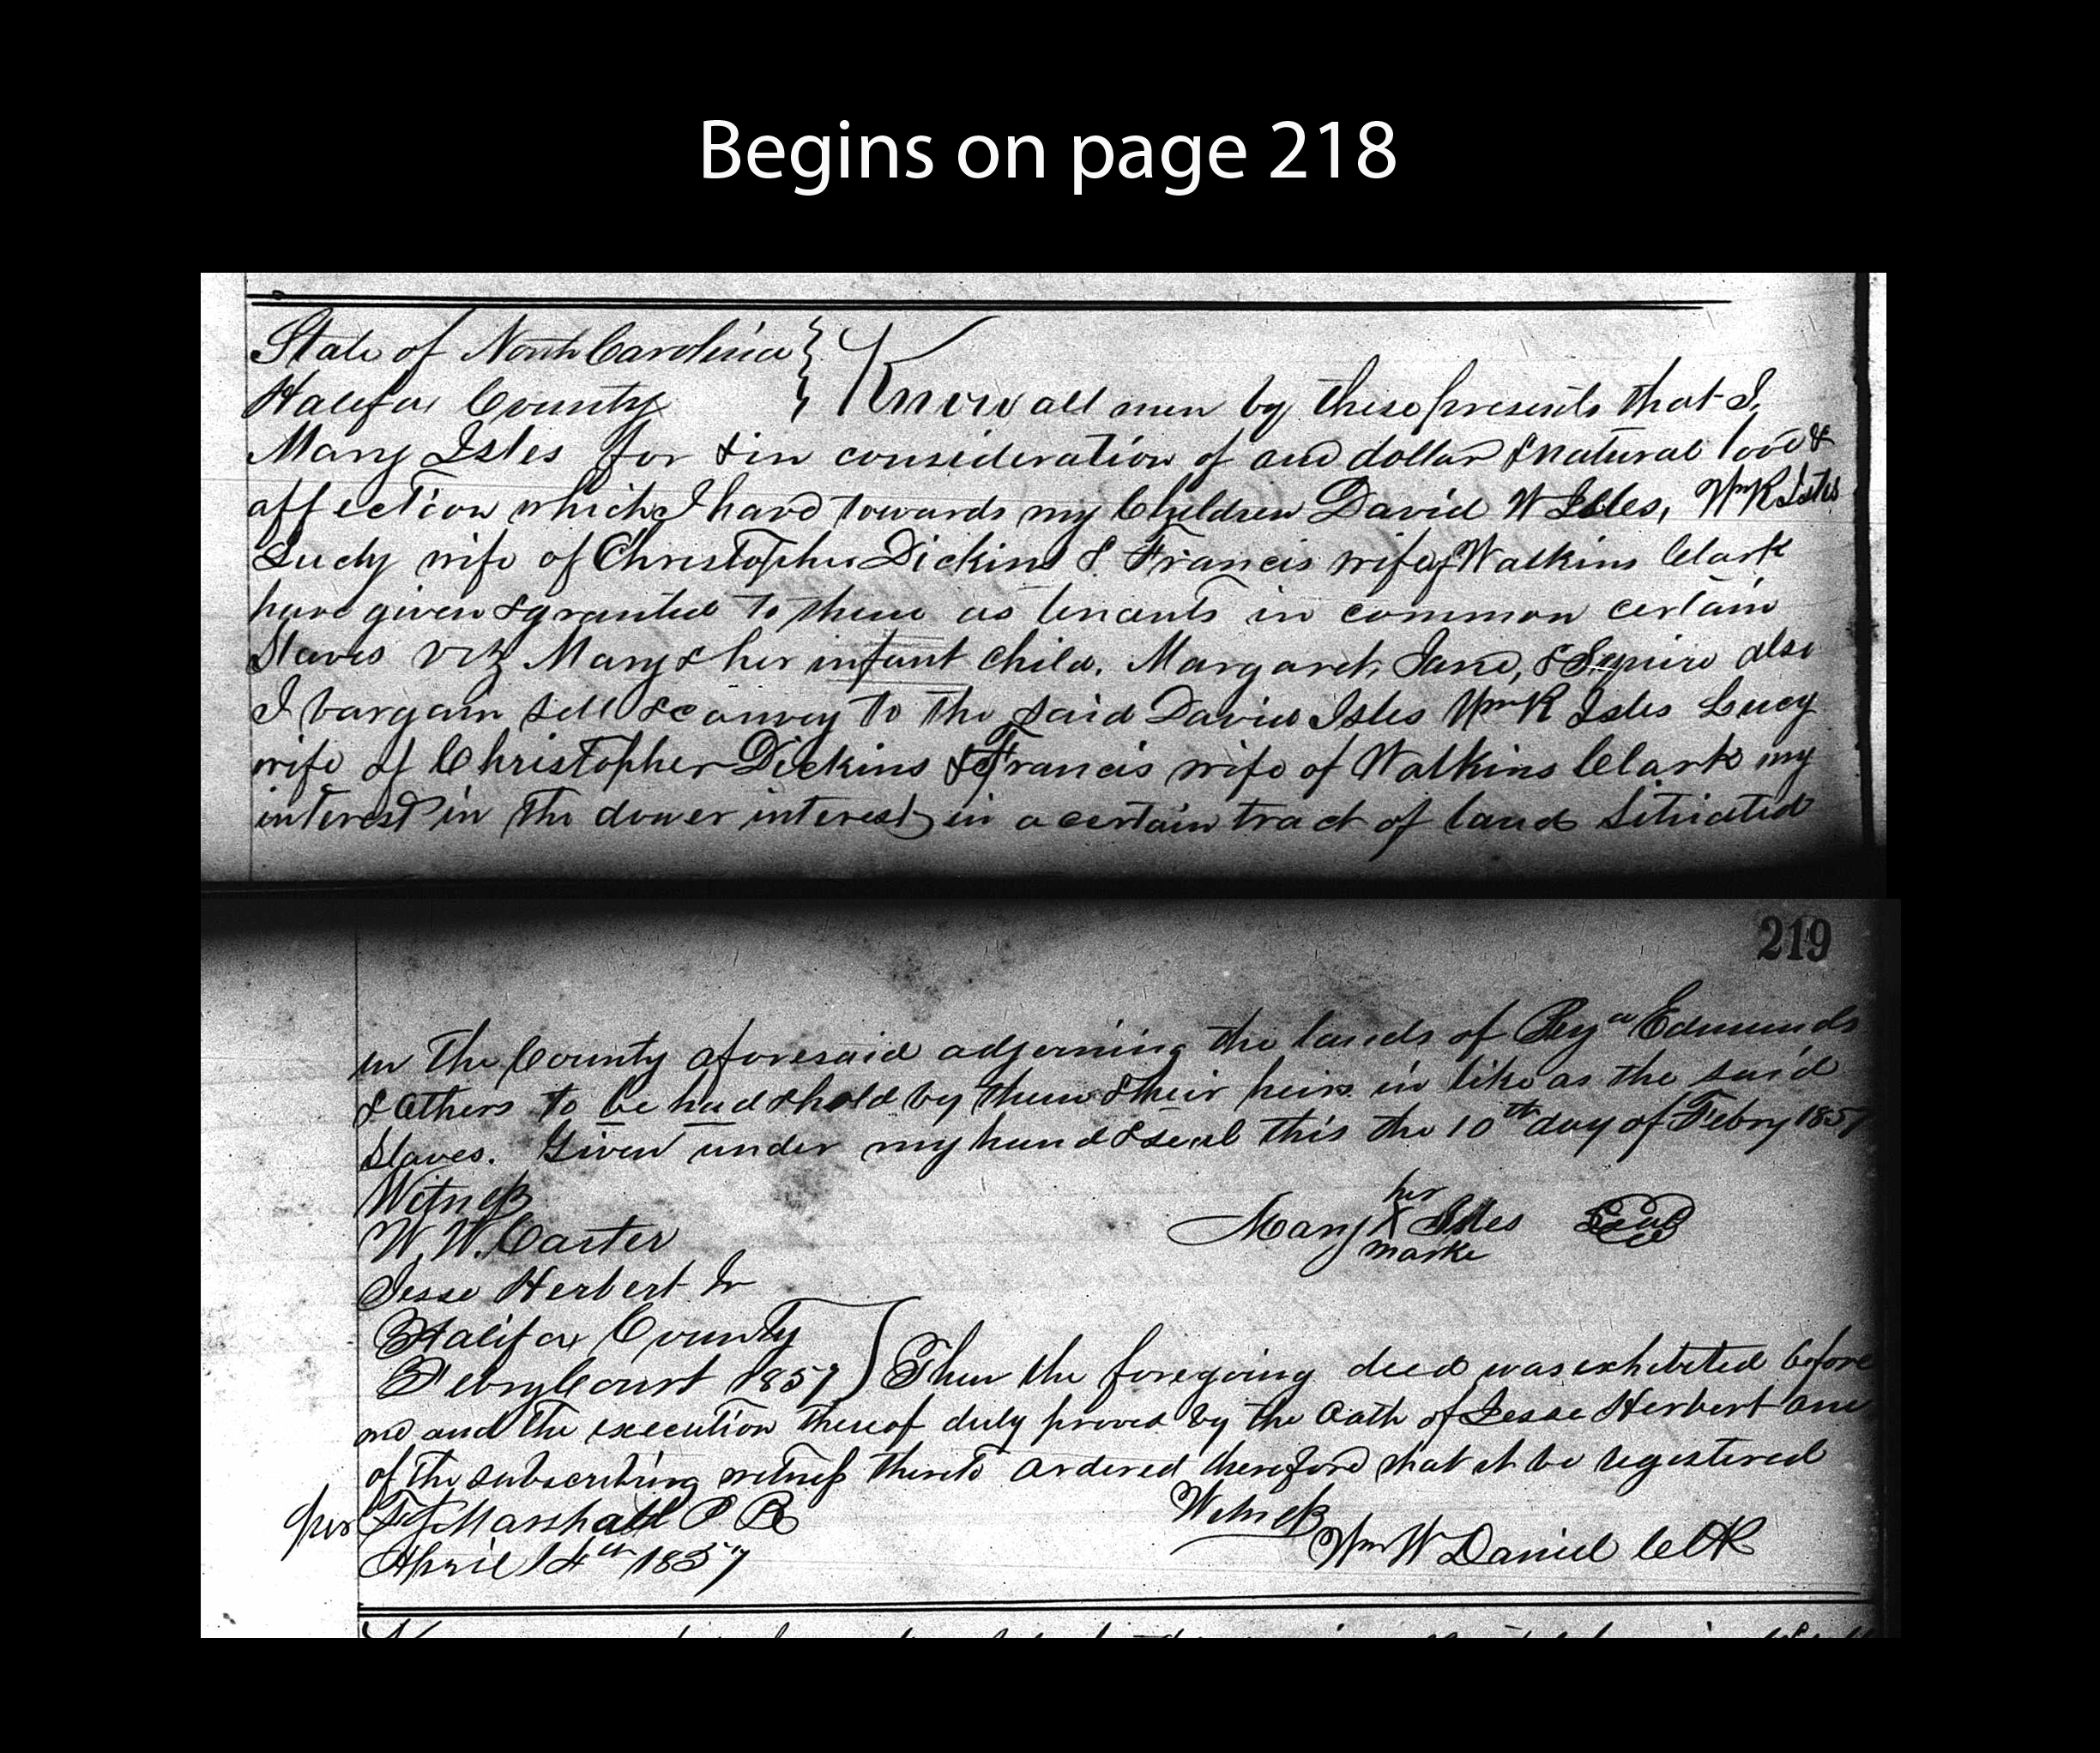 Begins on page 218
State of North Carolina
Halifax County Know all men by these presents that I,
Mary Isles for & in consideration of one dollar & natural love &
affection which I have towards my Children David W Isles, Wm R Isles
Lucy wife of Christopher Dickins & Francis wife of Watkins Clark
have given & granted to them as tenants in common certain
Slaves viz Mary & her infant child, Margaret, Jane, & Squire also
I bargain sell & convey to the said David Isles Wm R Isles Lucy
wife of Christopher Dickins & Francis wife of Watkins Clark my
interest in the dower interest in a certain tract of land Situated
219
in the County aforesaid adjoining the lands of Edmunds
& others to be had & hold by them & their heirs in like as the said
Slaves. Given under my hand & seal this the 10th day of Febry 1857
Witness
W. W. Carter
her
Mary X Isles Seal
marke
Jesse Herbert Jr
Halifax County
Febry Court 1857 Then the foregoing deed was exhibited before
me and the execution thereof duly proved by the Oath of Jesse Herbert one
of the subscribing witness thereto ordered therefore that it be registered
Marshall P R
Witness
Wm W Daniel Clk
April 14th 1857